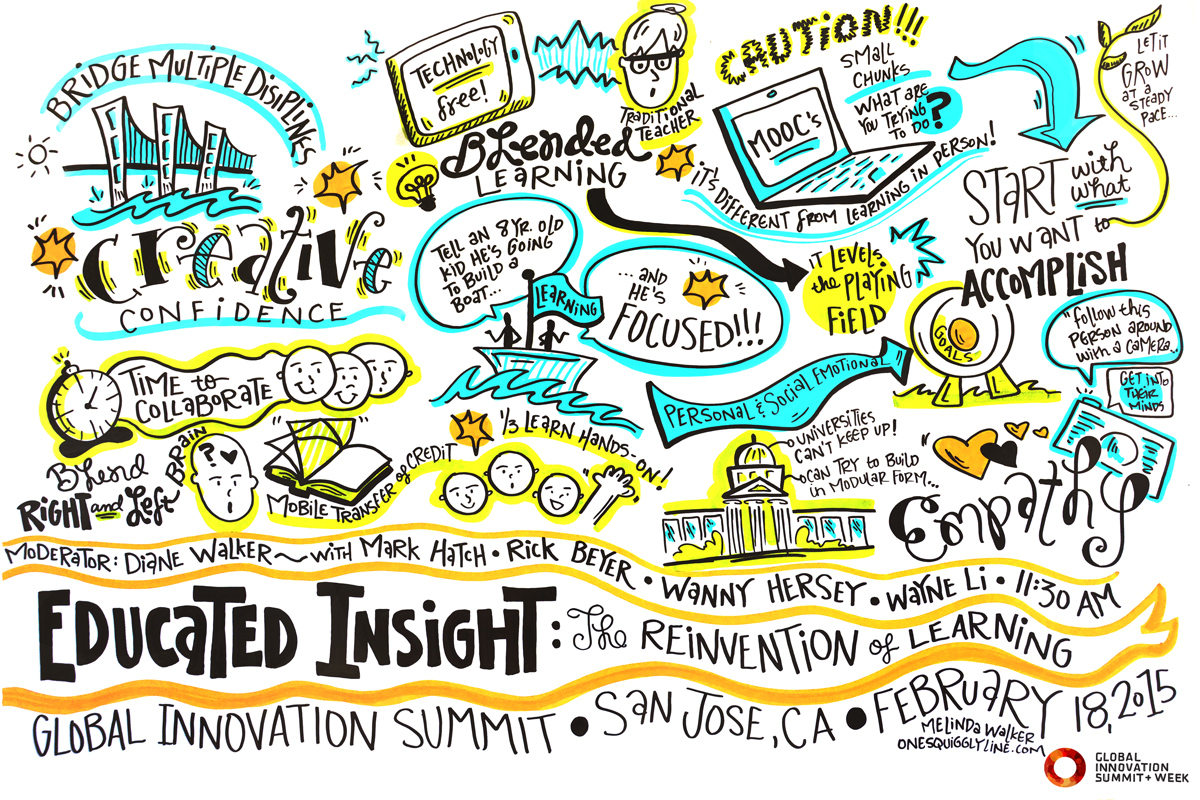 BRIDGE MULTIPLE DISIPLINES
CREATIVE
CONFIDENCE
TECHNOLOGY
free!
TRADITIONAL
TEACHER
BLENDED
LEARNING
CAUTION!!!
SMALL
CHUNKS
WHAT ARE
YOU TRYING
TO DO?
MOOC's
iT'S DIFFERENT FROM LEARNING IN PERSON!
LET IT
GROW
AT A
STEADY
PACE...
START with
what
YOU WANT to
ACCOMPLISH
TELL AN 8 YR. OLD
KID HE'S GOING
TO BUILD A
BOAT...
LEARNING
...AND
HE'S
FOCUSED!!!
IT LEVELS
the PLAYING
FIELD
GOALS
"FOLLOW THIS
PERSON AROUND
with a CAMERA.
GET INTO
THEIR
MINDS
TIME to
COLLABORATE
PERSONAL & SOCIAL EMOTIONAL
BLEND
RIGHT and Left
BRAIN
?
MOBILE TRANSFER of CREDIT
1/3 LEARN HANDS-ON!
UNIVERSITIES
CAN'T KEEP UP!
CAN TRY to BUILD
in MODULAR FORM...
EMPATHY
MODERATOR: DIANE WALKER ~ WITH MARK HATCH • RICK BEYER • WANNY HERSEY • WAYNE Li • 11:30 AM
EDUCATED INSIGHT: The REINVENTION of LEARNING
GLOBAL INNOVATION SUMMIT • SAN JOSE, CA • FEBRUARY 18, 2015
MELINDA WALKER
ONESQUIGGLYLINE.COM
GLOBAL
INNOVATION
SUMMIT + WEEK